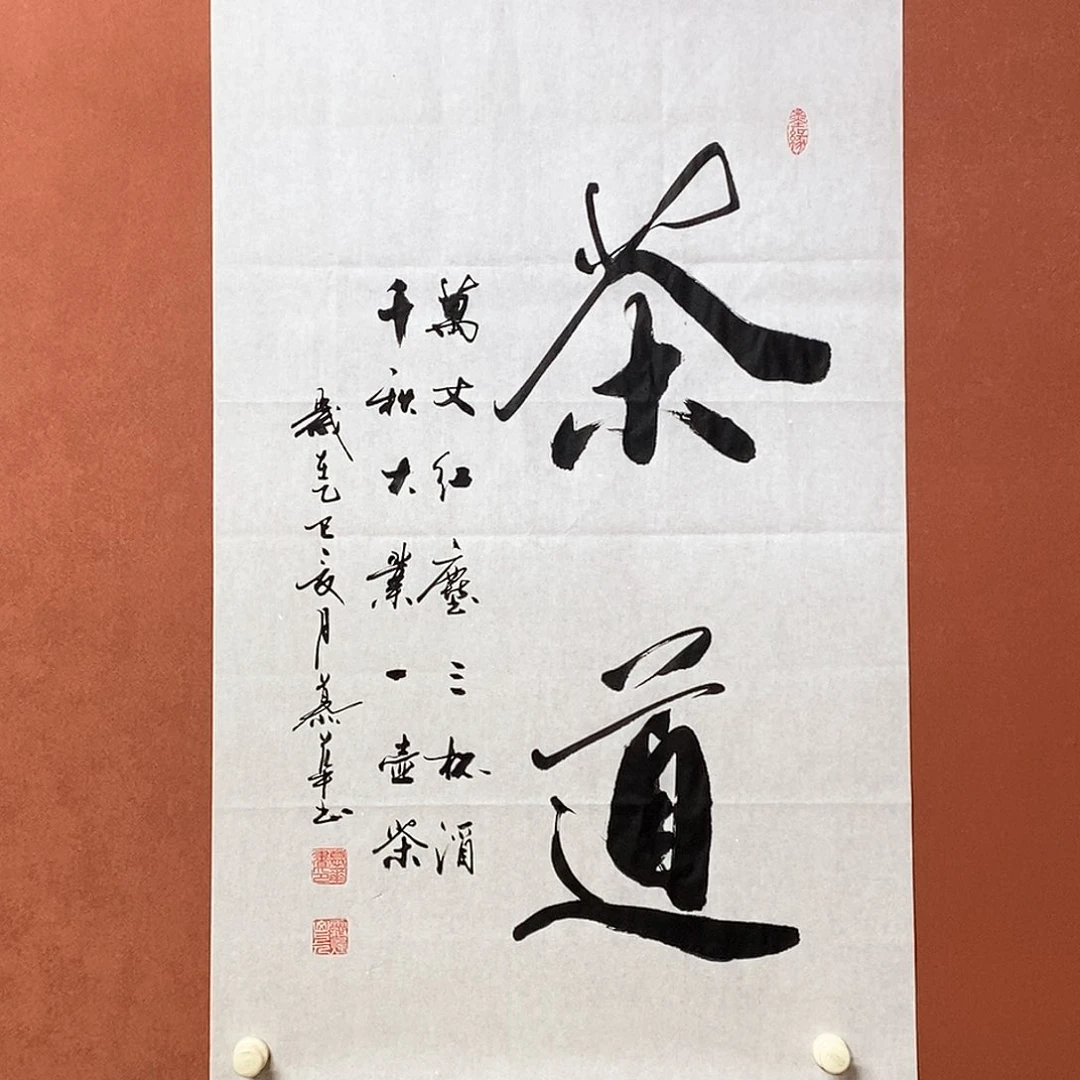 茶道
萬丈紅塵三杯酒
千秋大業一壺茶
歲在乙巳亥月慕華书
墨緣